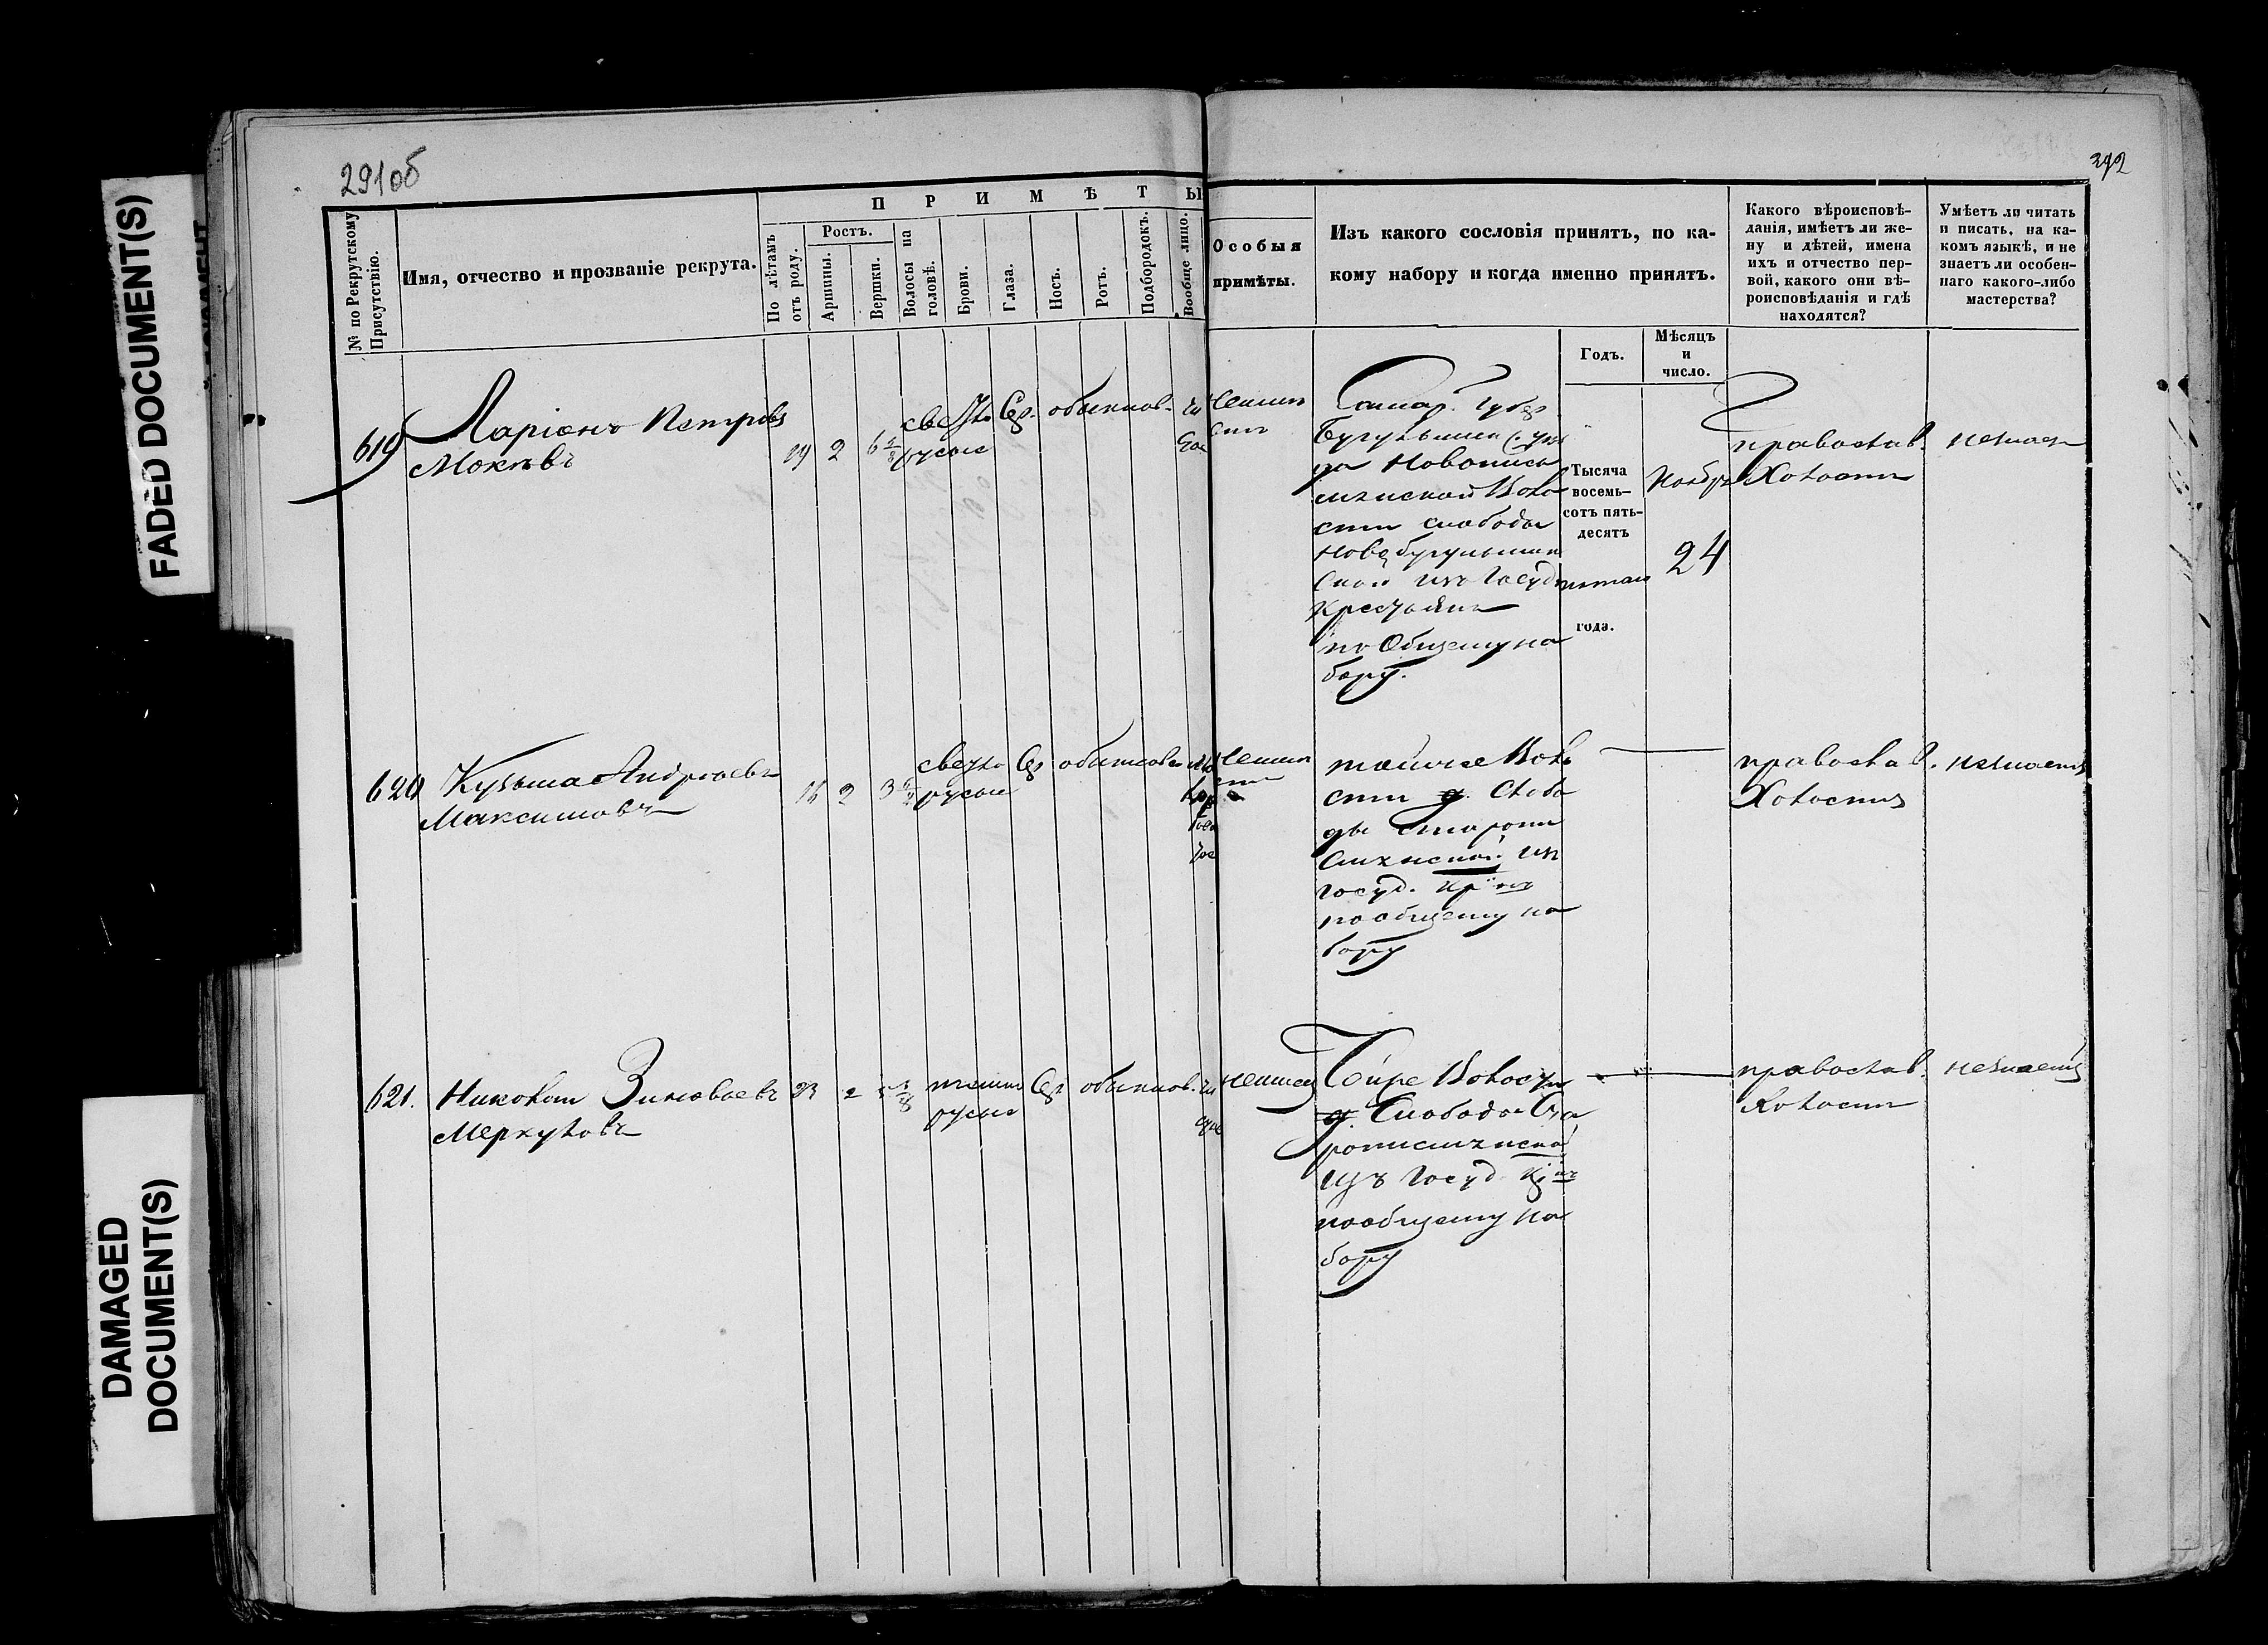 FADED DOCUMENT(S)
DAMAGED
DOCUMENT(S)
291об
292
№ по Рекрутскому
Присутствію.
Имя, отчество и прозваніе рекрута.
П Р И М Ѣ Т Ы
По лѣтамъ
отъ роду.
Ростъ.
Аршины.
Вершки.
Волосы на
головѣ.
Брови.
Глаза.
Носъ.
Ротъ.
Подбородокъ.
Вообще лицо.
Особыя
примѣты.
Изъ какого сословія принятъ, по ка-
кому набору и когда именно принятъ.
Годъ.
Мѣсяцъ
и
число.
Какого вѣроисповѣ-
данія, имѣетъ ли же-
ну и дѣтей, имена
ихъ и отчество пер-
вой, какого они вѣ-
роисповѣданія и гдѣ
находятся?
Умѣетъ ли читать
и писать, на ка-
комъ языкѣ, и не
знаетъ ли особен-
наго какого-либо
мастерства?
619
Ларіонъ Петровъ
Мокѣевъ
19 2 6
светло
русые
Ср. обыкнов.
Самар. Губер
Бугульмин
Новописъ
мянской Воло
сти слободы
Новобугульмин
ской изъ Госуд
Крестьянъ
по Общему на
бору.
Тысяча
восемь-
сотъ пять-
десятъ
пятаго
года.
Ноябр
24
православ.
Холостъ
незнаетъ
620
Кузьма Андреевъ
Максимовъ
2 3
светло
русые
Ср обыкнов
тойже Воло
сти д. Слобо
ды старопи
смянской изъ
госуд. кр
по общему на
бору
православ.
Холостъ
незнаетъ
621.
Николай Зиновьевъ
Меркуловъ
23 2
темно
русые
Ср обыкнов.
неимеет
Волости
д. Слобода Ста
рописмянской
изъ Госуд
по общему на
бору
православ.
Холостъ
незнаетъ